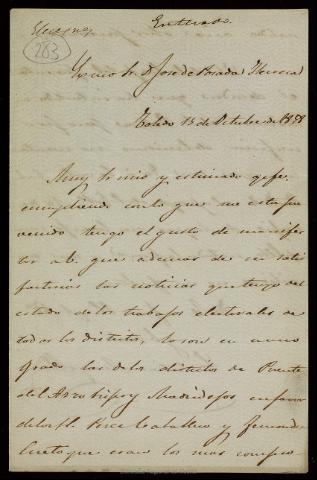 Elecciones
Enterado.
283
Excmo Sr. D. José de Posada Herrera
Toledo 13 de Octubre de 1858
Muy Sr. mio y estimado gefe:
cumpliendo con lo que me esta pre
venido tengo el gusto de manifes
tar a V. que ademas de ser satis
factorias las noticias que tengo del
estado de los trabajos electorales de
todos los distritos, lo son en sumo
grado las de los distritos de Puente
del Arzobispo y Madridejos en favor
de los SS. Perez Caballero y Fernandez
Cueto que eran los mas compro-